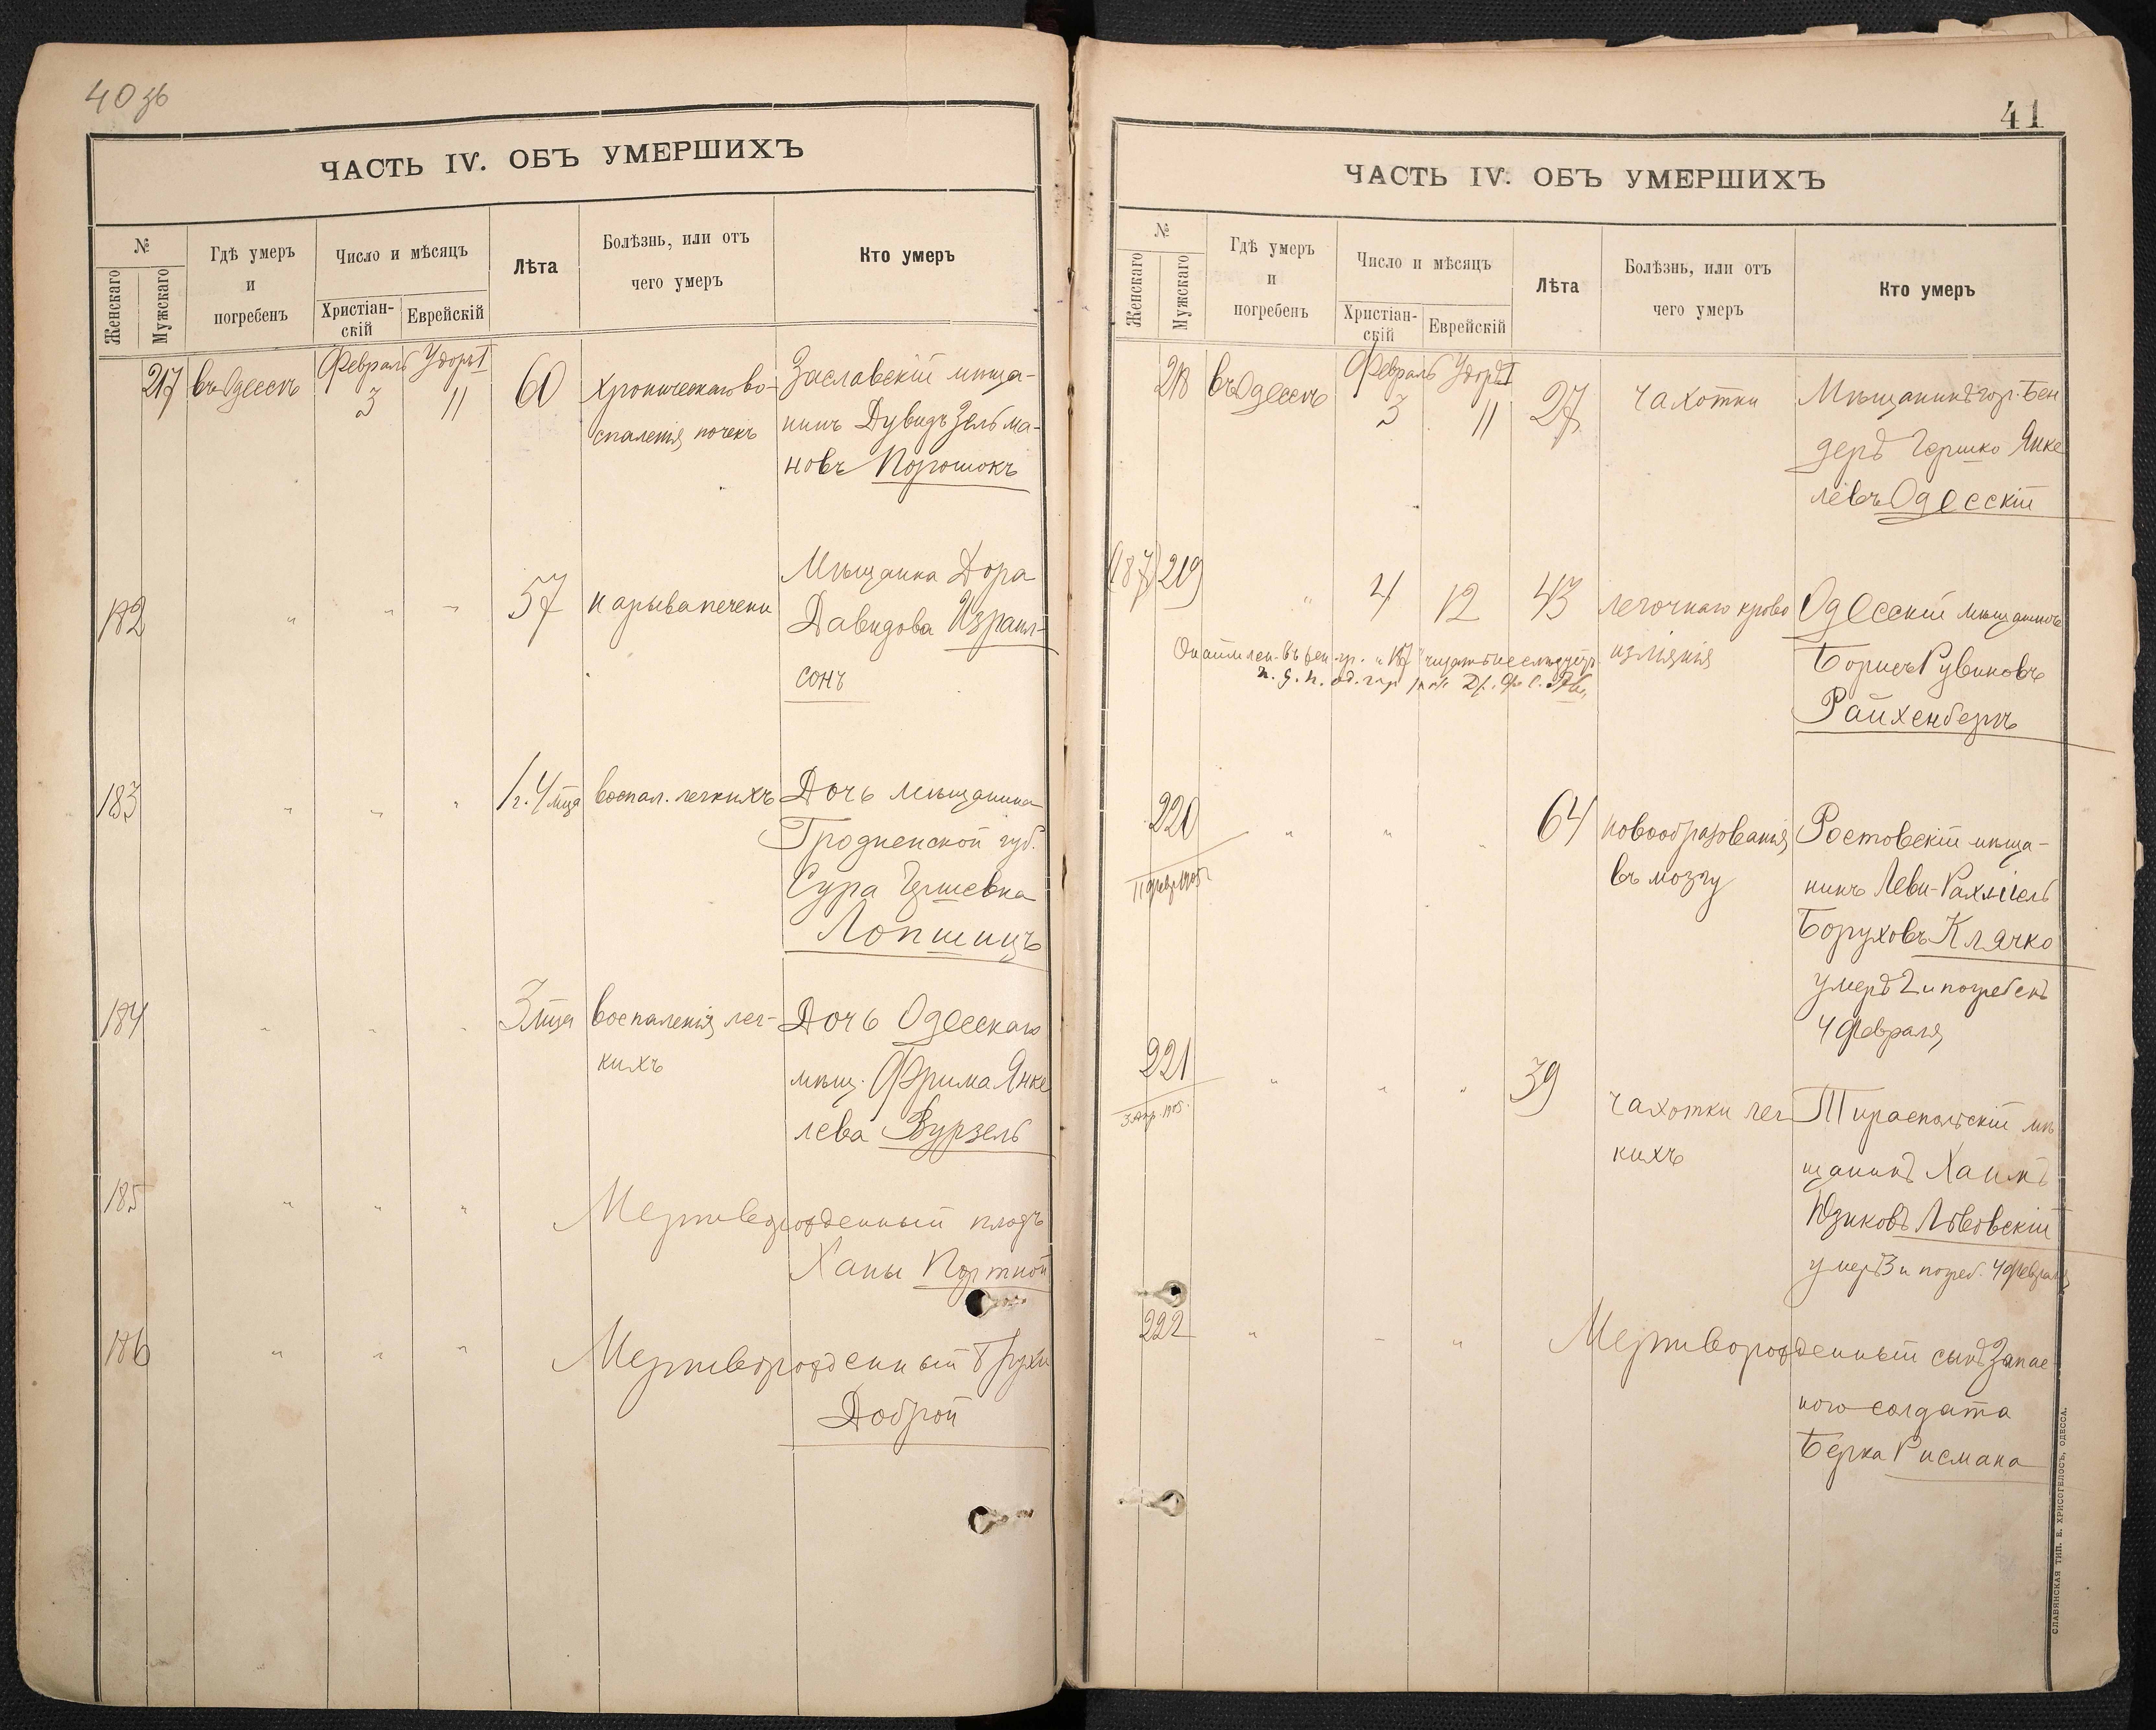 40 зв
ЧАСТЬ IV. ОБЪ УМЕРШИХЪ
№
Женскаго
Мужскаго
Гдѣ умеръ
и
погребенъ
Число и мѣсяцъ
Христіан-
скій
Еврейскій
Лѣта
Болѣзнь, или отъ
чего умеръ
Кто умеръ
217 въ Одессѣ Февраль 3 Адоръ I 11 60 хроническаго во-
спаленія почекъ
Заславскій мѣща-
нинъ Дувидъ Зельма-
новъ Порошокъ
182 " " " 57 нарыва печени
Мѣщанка Дора
Давидова Израил-
сонъ
183 " " " 1 г. 4 мца воспал. легкихъ
Дочь мѣщанина
Гродненской губ.
Сура Гершевна
Лопшицъ
184 " " " 3 мца воспаленія лег-
кихъ
Дочь Одесскаго
мѣщ. Фрима Янке
лева Вурзель
185 " " " Мертворожденный плодъ
Ханы Портной
186 " " " Мертворожденный Брухи
Доброй
41
ЧАСТЬ IV. ОБЪ УМЕРШИХЪ
№
Женскаго
Мужскаго
Гдѣ умеръ
и
погребенъ
Число и мѣсяцъ
Христіан-
скій
Еврейскій
Лѣта
Болѣзнь, или отъ
чего умеръ
Кто умеръ
218 въ Одессѣ Февраль 3 Адоръ I 11 27 чахотки
Мѣщанинъ гор. Бен
деръ Гершко Янке
левъ Одесскій
(187) 219 " 4 12 43 легочнаго крово
изліянія
Одесскій мѣщанинъ
Борисъ Рувиновъ
Райхенбергъ
"187" читать не слѣдуетъ
220 " " " 64 новообразованія
въ мозгу
11 февр. 1905 г
Ростовскій мѣща-
нинъ Леви-Рахміель
Боруховъ Клячко
умеръ 2 и погребенъ
4 Февраля
221 " " " 39 чахотки лег
кихъ
1905.
Тираспольскій мѣ
щанинъ Хаимъ
Юзиковъ Львовскій
умеръ 3 и погреб. 4 Февраля
222 " " " Мертворожденный сынъ Запас-
ного солдата
Берка Рисмана
СЛАВЯНСКАЯ ТИП. Е. ХРИСОГЕЛОСЪ, ОДЕССА.